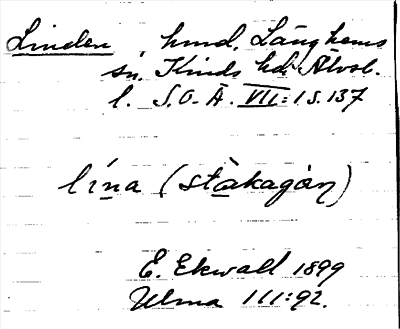 Linden, hmd, Länghems
sn. Kinds hd. Älvsb.
l. S.O.Ä. VII:1 s. 137
lína (stàkagàn)
E. Ekwall 1899
Ulma 111:92.